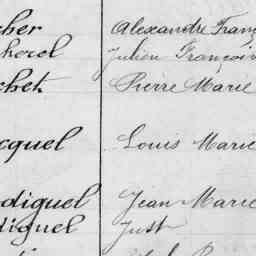 cher Alexandre Franç
cherel Julien François
chet Pierre Marie
cquel Louis Marie
diguel Jean Marie
diguel Just